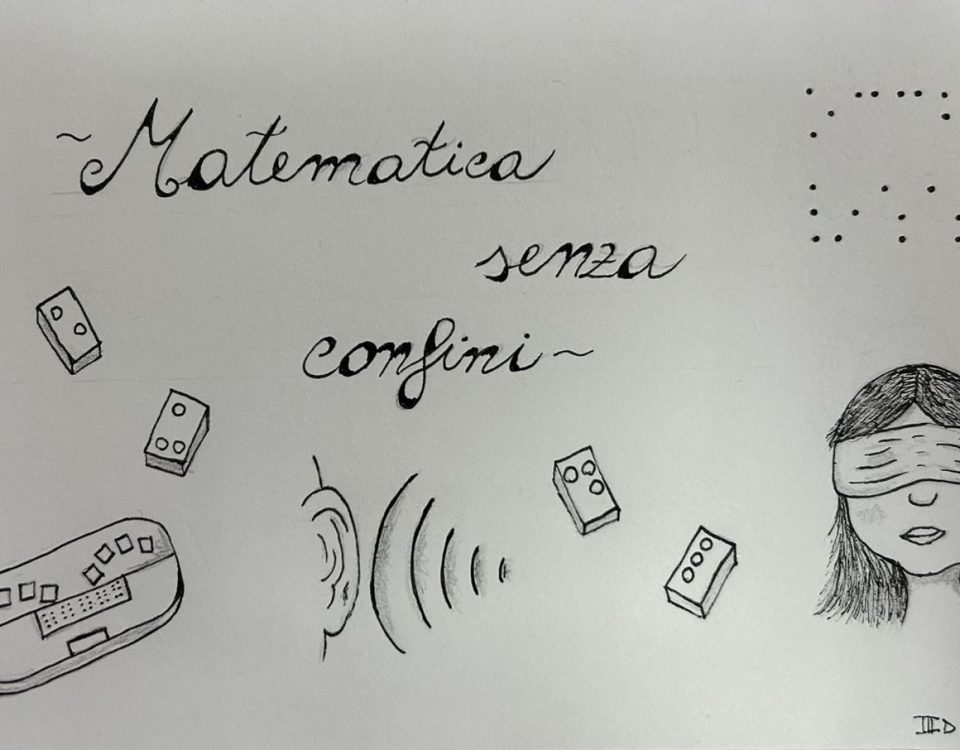 ~Matematica
senza
confini~
III D